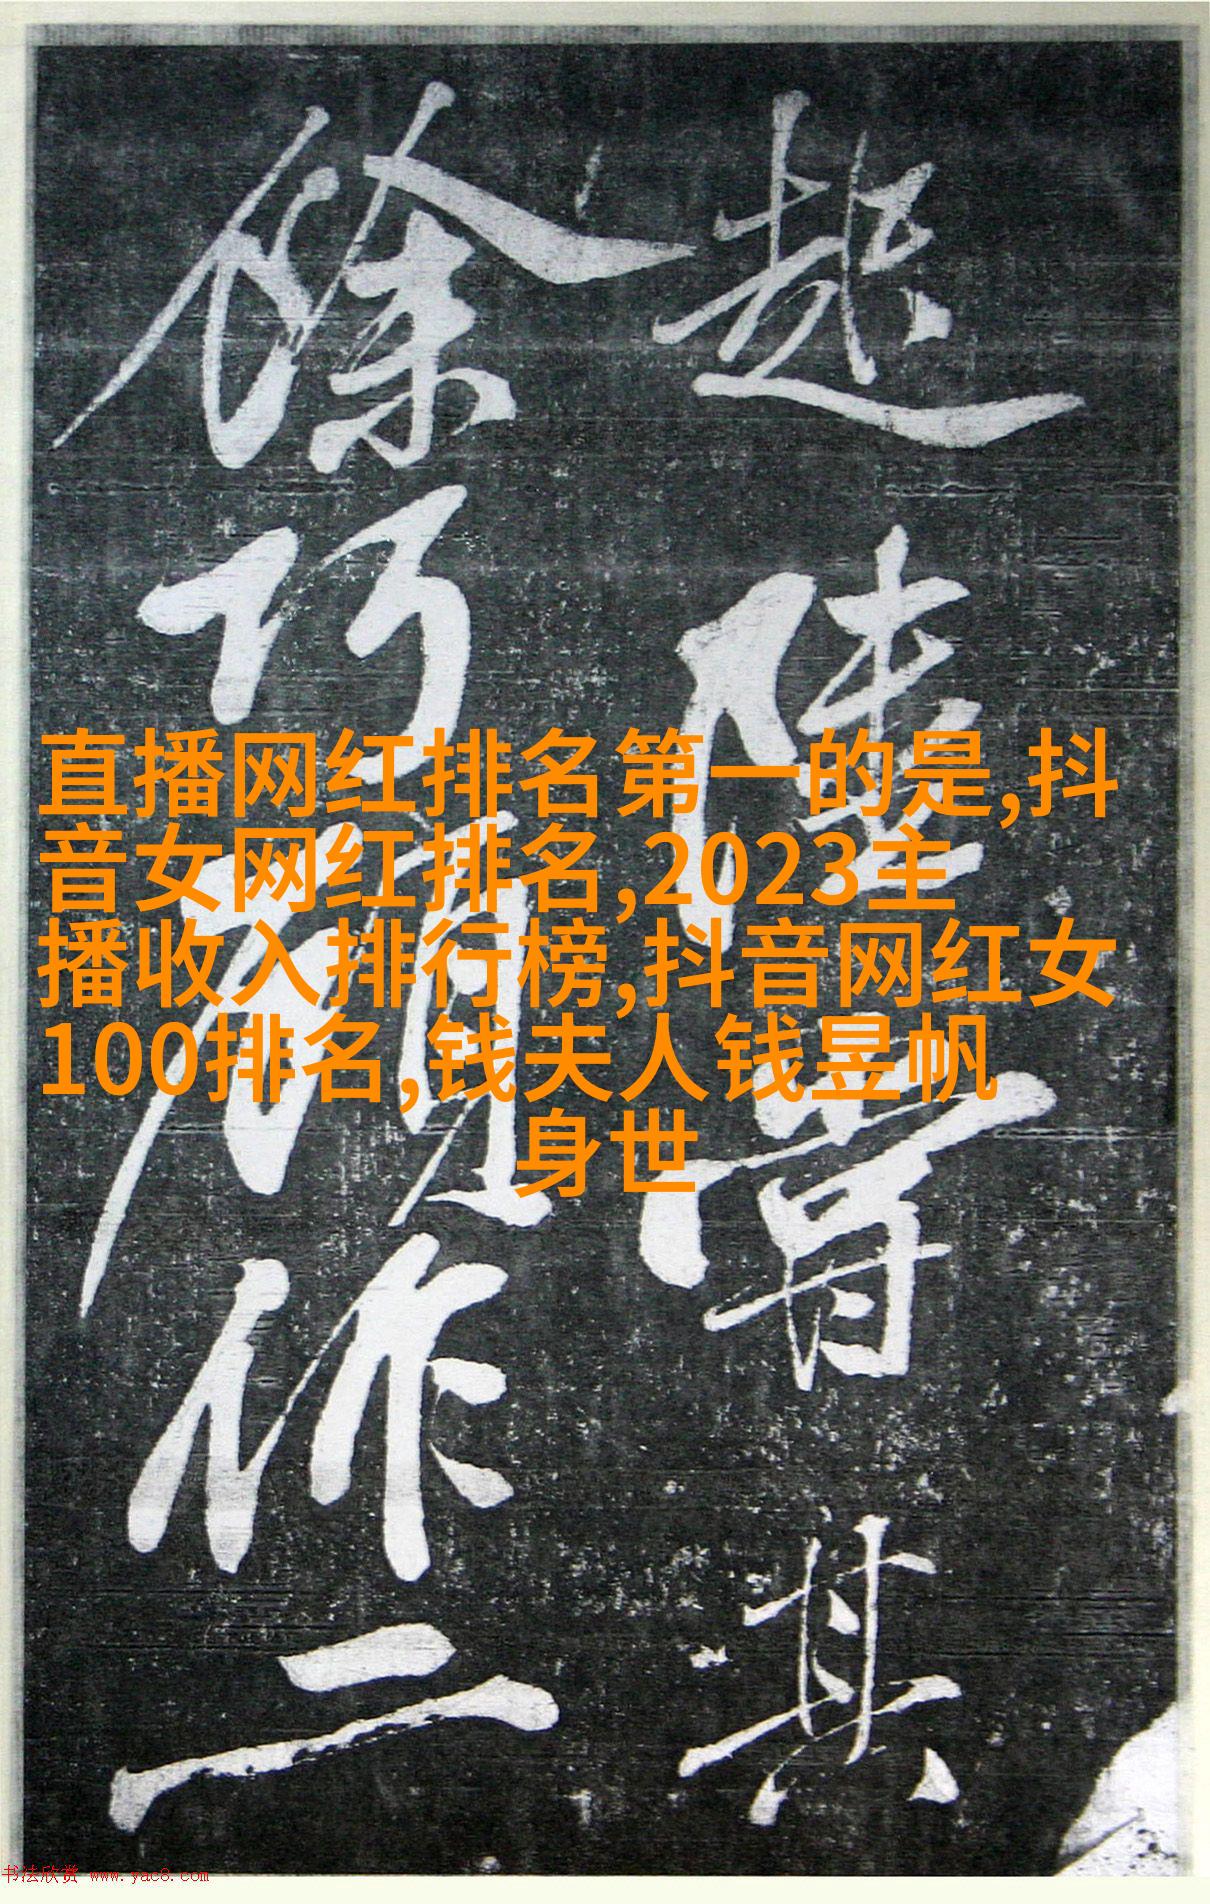 陸其
巧作二
直播网红排名第一的是,抖
音女网红排名,2023主
播收入排行榜,抖音网红女
100排名,钱夫人钱昱帆
身世
书法欣赏 www.yac8.com